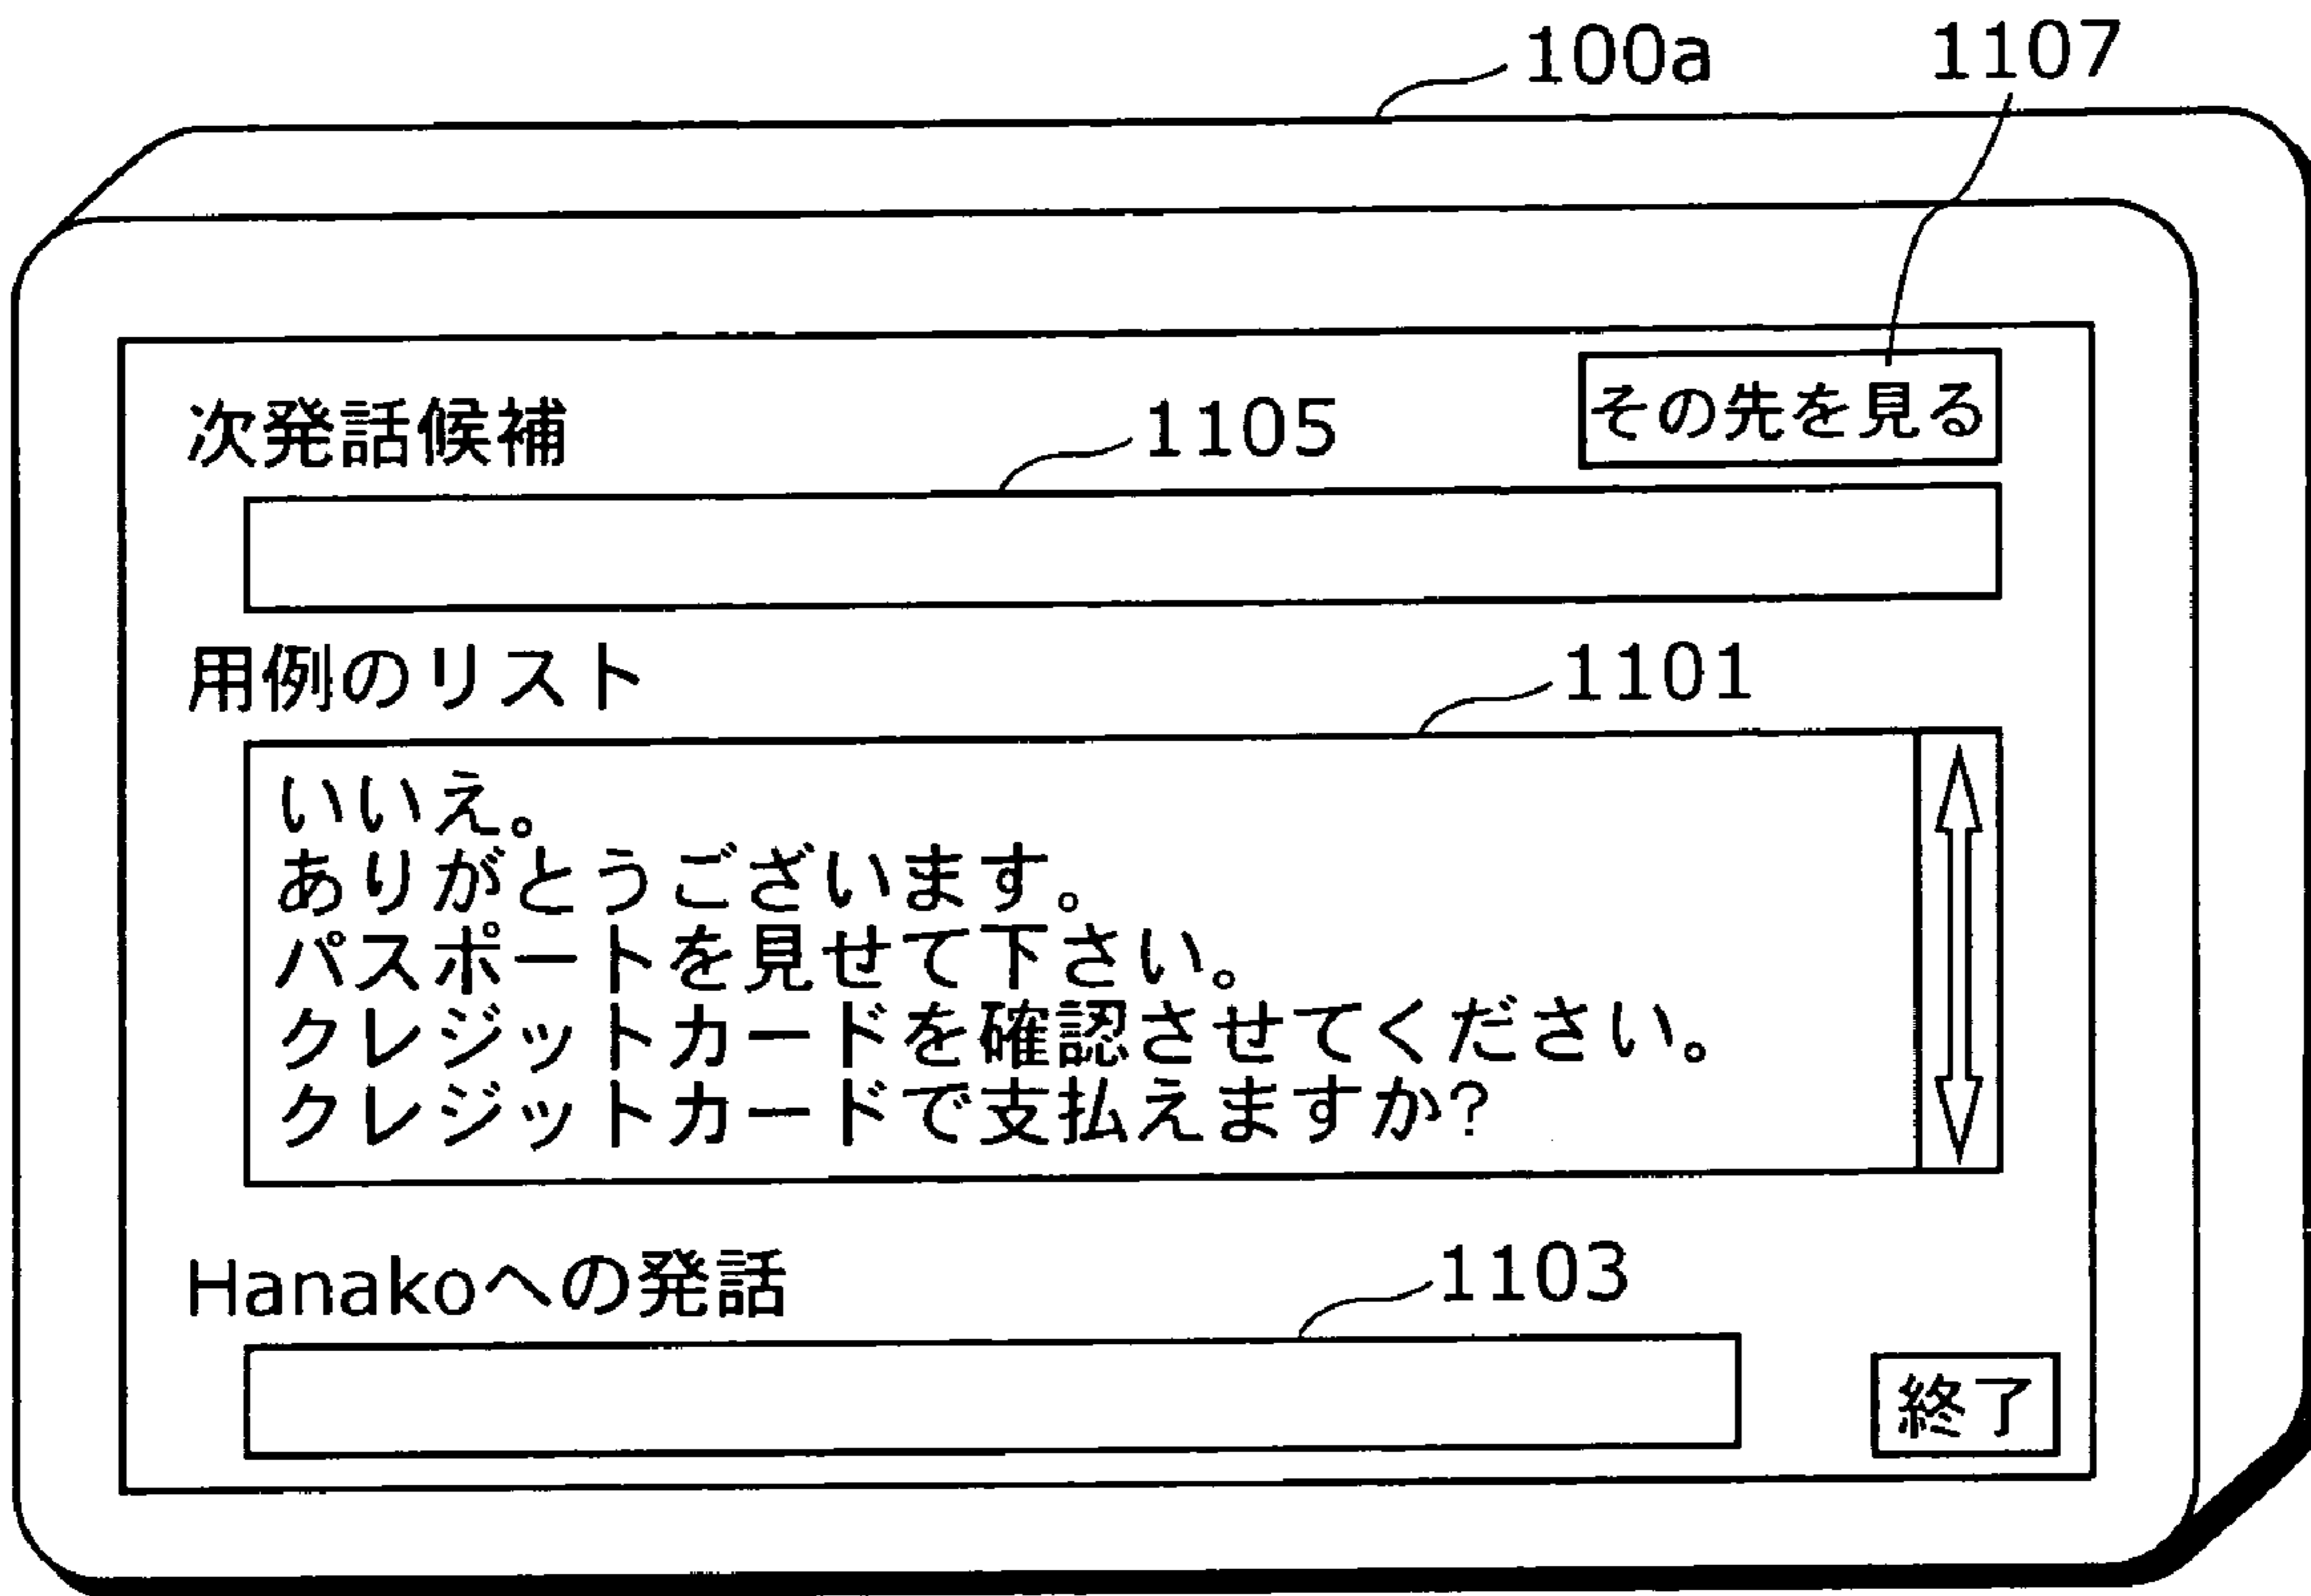 100a
1107
次発話候補
1105
その先を見る
用例のリスト
1101
いいえ。
ありがとうございます。
パスポートを見せて下さい。
クレジットカードを確認させてください。
クレジットカードで支払えますか?
Hanakoへの発話
1103
終了